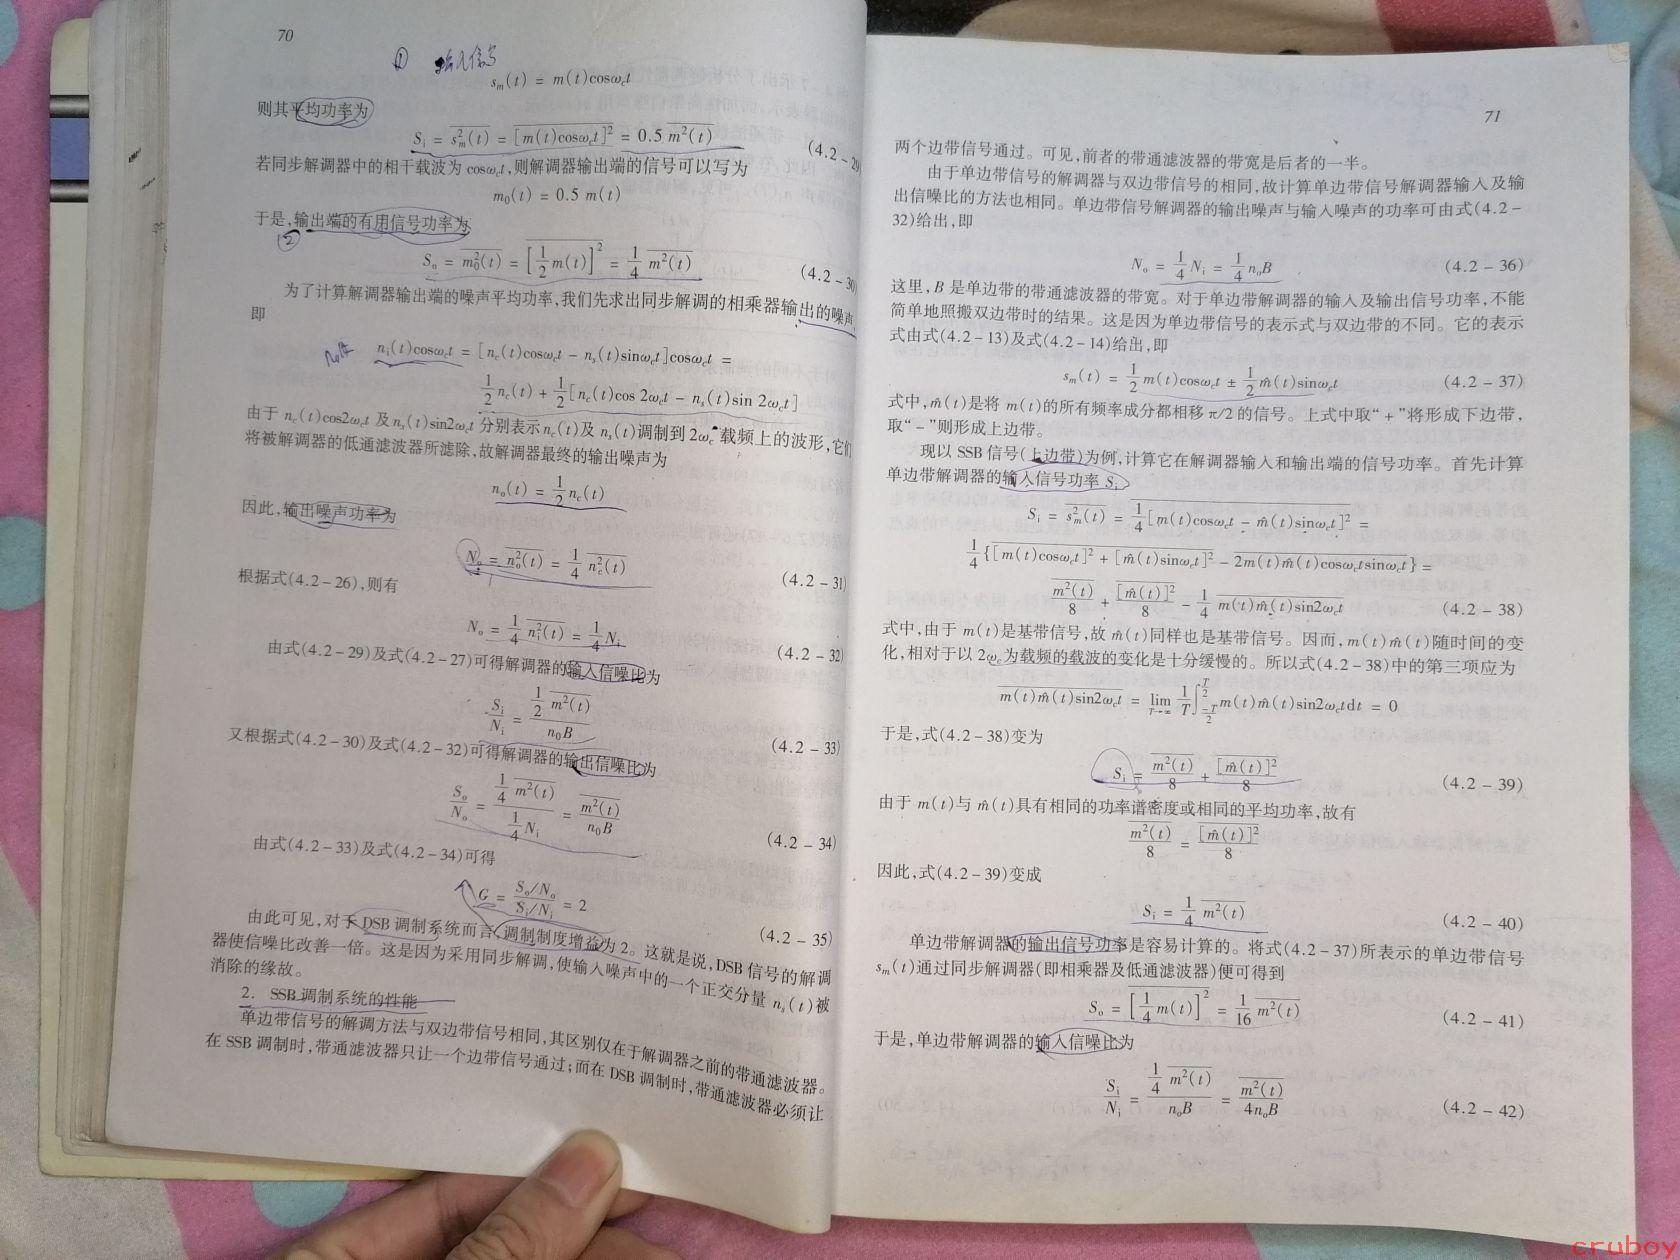 70
① 输入信号
sm(t) = m(t)cosωct
则其平均功率为
Si = \overline{sm²(t)} = \overline{[m(t)cosωct]²} = 0.5 \overline{m²(t)} (4.2-29
若同步解调器中的相干载波为 cosωct,则解调器输出端的信号可以写为
m0(t) = 0.5 m(t)
于是,输出端的有用信号功率为
②
So = \overline{m0²(t)} = \overline{[½m(t)]²} = ¼ \overline{m²(t)} (4.2-30
为了计算解调器输出端的噪声平均功率,我们先求出同步解调的相乘器输出的噪声,
即
ni(t)cosωct = [nc(t)cosωct - ns(t)sinωct]cosωct =
½nc(t) + ½[nc(t)cos 2ωct - ns(t)sin 2ωct]
由于 nc(t)cos2ωct 及 ns(t)sin2ωct 分别表示 nc(t)及 ns(t)调制到 2ωc 载频上的波形,它们
将被解调器的低通滤波器所滤除,故解调器最终的输出噪声为
no(t) = ½nc(t)
因此,输出噪声功率为
No = \overline{no²(t)} = ¼ \overline{nc²(t)} (4.2-31)
根据式(4.2-26),则有
No = ¼ \overline{ni²(t)} = ¼Ni (4.2-32)
由式(4.2-29)及式(4.2-27)可得解调器的输入信噪比为
Si/Ni = ½ \overline{m²(t)} / n0B (4.2-33)
又根据式(4.2-30)及式(4.2-32)可得解调器的输出信噪比为
So/No = ¼ \overline{m²(t)} / ¼Ni = \overline{m²(t)} / n0B (4.2-34)
由式(4.2-33)及式(4.2-34)可得
G = (So/No)/(Si/Ni) = 2 (4.2-35)
由此可见,对于 DSB 调制系统而言,调制制度增益为 2。这就是说,DSB 信号的解调
器使信噪比改善一倍。这是因为采用同步解调,使输入噪声中的一个正交分量 ns(t)被
消除的缘故。
2. SSB 调制系统的性能
单边带信号的解调方法与双边带信号相同,其区别仅在于解调器之前的带通滤波器。
在 SSB 调制时,带通滤波器只让一个边带信号通过;而在 DSB 调制时,带通滤波器必须让
71
两个边带信号通过。可见,前者的带通滤波器的带宽是后者的一半。
由于单边带信号的解调器与双边带信号的相同,故计算单边带信号解调器输入及输
出信噪比的方法也相同。单边带信号解调器的输出噪声与输入噪声的功率可由式(4.2-
32)给出,即
No = ¼Ni = ¼noB (4.2-36)
这里,B 是单边带的带通滤波器的带宽。对于单边带解调器的输入及输出信号功率,不能
简单地照搬双边带时的结果。这是因为单边带信号的表示式与双边带的不同。它的表示
式由式(4.2-13)及式(4.2-14)给出,即
sm(t) = ½m(t)cosωct ± ½m̂(t)sinωct (4.2-37)
式中,m̂(t)是将 m(t)的所有频率成分都相移 π/2 的信号。上式中取“+”将形成下边带,
取“-”则形成上边带。
现以 SSB 信号(上边带)为例,计算它在解调器输入和输出端的信号功率。首先计算
单边带解调器的输入信号功率 Si
Si = \overline{sm²(t)} = ¼\overline{[m(t)cosωct - m̂(t)sinωct]²} =
¼{\overline{[m(t)cosωct]² + [m̂(t)sinωct]² - 2m(t)m̂(t)cosωctsinωct}} =
\overline{m²(t)}/8 + \overline{[m̂(t)]²}/8 - ¼ \overline{m(t)m̂(t)sin2ωct} (4.2-38)
式中,由于 m(t)是基带信号,故 m̂(t)同样也是基带信号。因而,m(t)m̂(t)随时间的变
化,相对于以 2ωc为载频的载波的变化是十分缓慢的。所以式(4.2-38)中的第三项应为
\overline{m(t)m̂(t)sin2ωct} = lim_{T→∞} 1/T ∫_{-T/2}^{T/2} m(t)m̂(t)sin2ωctdt = 0
于是,式(4.2-38)变为
Si = \overline{m²(t)}/8 + \overline{[m̂(t)]²}/8 (4.2-39)
由于 m(t)与 m̂(t)具有相同的功率谱密度或相同的平均功率,故有
\overline{m²(t)}/8 = \overline{[m̂(t)]²}/8
因此,式(4.2-39)变成
Si = ¼ \overline{m²(t)} (4.2-40)
单边带解调器的输出信号功率是容易计算的。将式(4.2-37)所表示的单边带信号
sm(t)通过同步解调器(即相乘器及低通滤波器)便可得到
So = \overline{[¼m(t)]²} = 1/16 \overline{m²(t)} (4.2-41)
于是,单边带解调器的输入信噪比为
Si/Ni = ¼ \overline{m²(t)} / noB = \overline{m²(t)} / 4noB (4.2-42)
cruboy